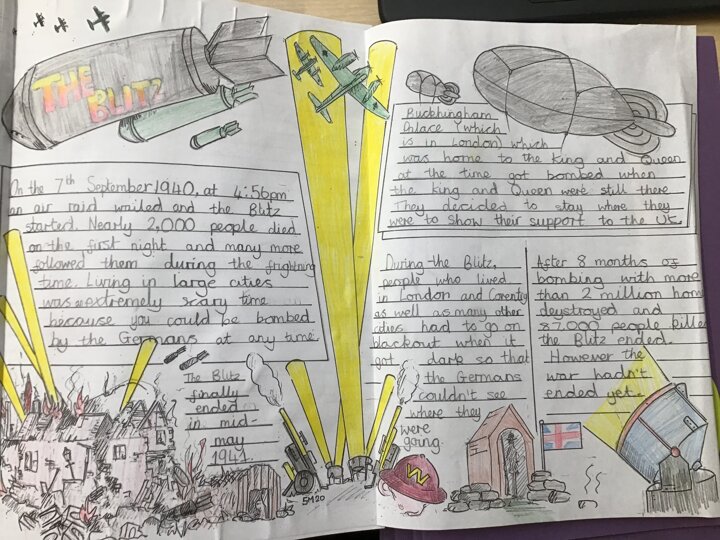 THE
BLITZ
On the 7th September 1940, at 4:56pm
an air raid wailed and the Blitz
started. Nearly 2,000 people died
on the first night and many more
followed them during the frightning
time. Living in large cities
was extremely scary time
because you could be bombed
by the Germans at any time.
The Blitz
finally
ended
in mid-
may
1941
EM20
Buckhingham
Palace (which
is in London) which
was home to the King and Queen
at the time got bombed when
the King and Queen were still there
They decided to stay where they
were to show their support to the UK.
During the Blitz,
people who lived
in London and Coventry
as well as many other
cities had to go on
blackout when it
got dark so that
the Germans
couldn't see
where they
were
going.
W
After 8 months of
bombing with more
than 2 million hom
deystroyed and
87,000 people killed
the Blitz ended.
However the
war hadn't
ended yet.